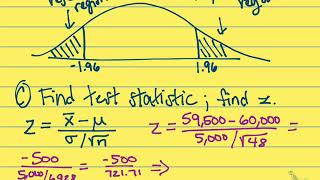 region
-1.96 1.96
© Find test statistic; find z.
z = x̄ - μ / σ/√n z = 59,500 - 60,000 / 5,000/√48 =
-500 / 5,000/6.928 = -500 / 721.71 ⇒